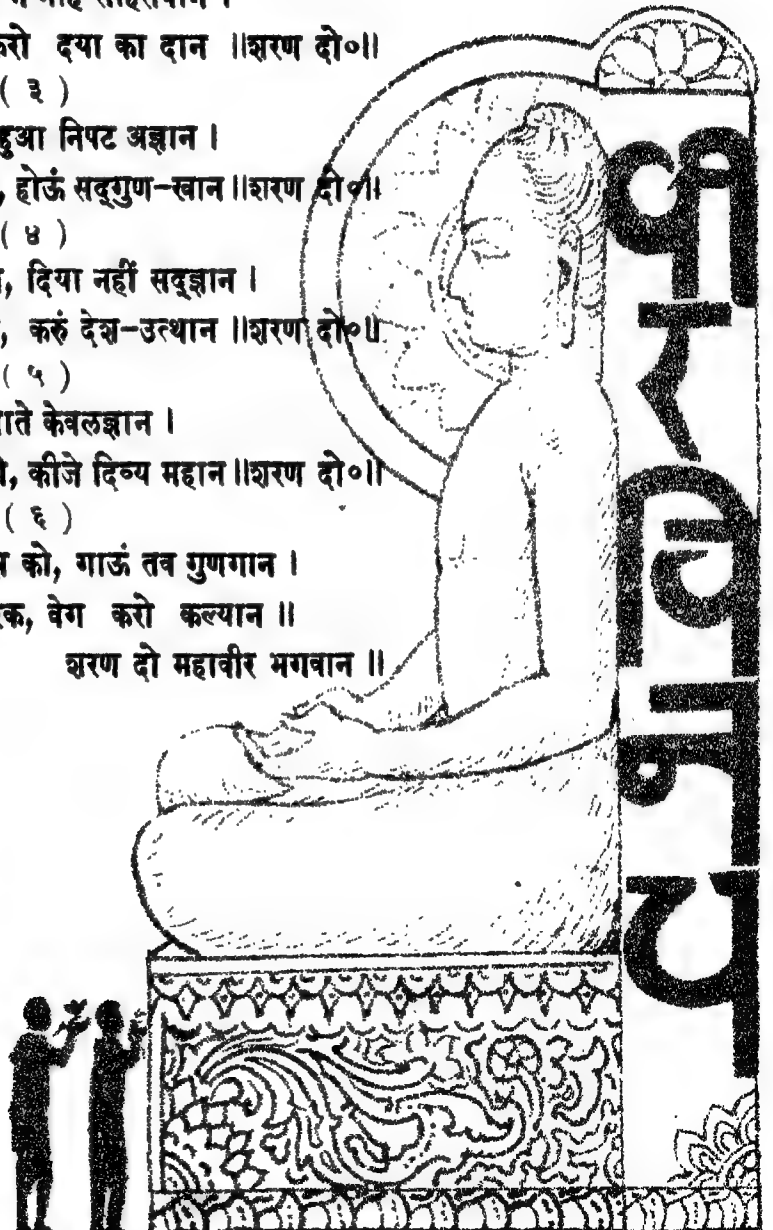 करो दया का दान ॥शरण दो०॥
( ३ )
हुआ निपट अज्ञान ।
, होऊं सद्‌गुण-खान ॥शरण दो०॥
( ४ )
, दिया नहीं सद्‌ज्ञान ।
, करुं देश-उत्थान ॥शरण दो०॥
( ५ )
केवलज्ञान ।
, कीजे दिव्य महान ॥शरण दो०॥
( ६ )
को, गाऊं तव गुणगान ।
, वेग करो कल्यान ॥
शरण दो महावीर भगवान ॥
वीर विनय